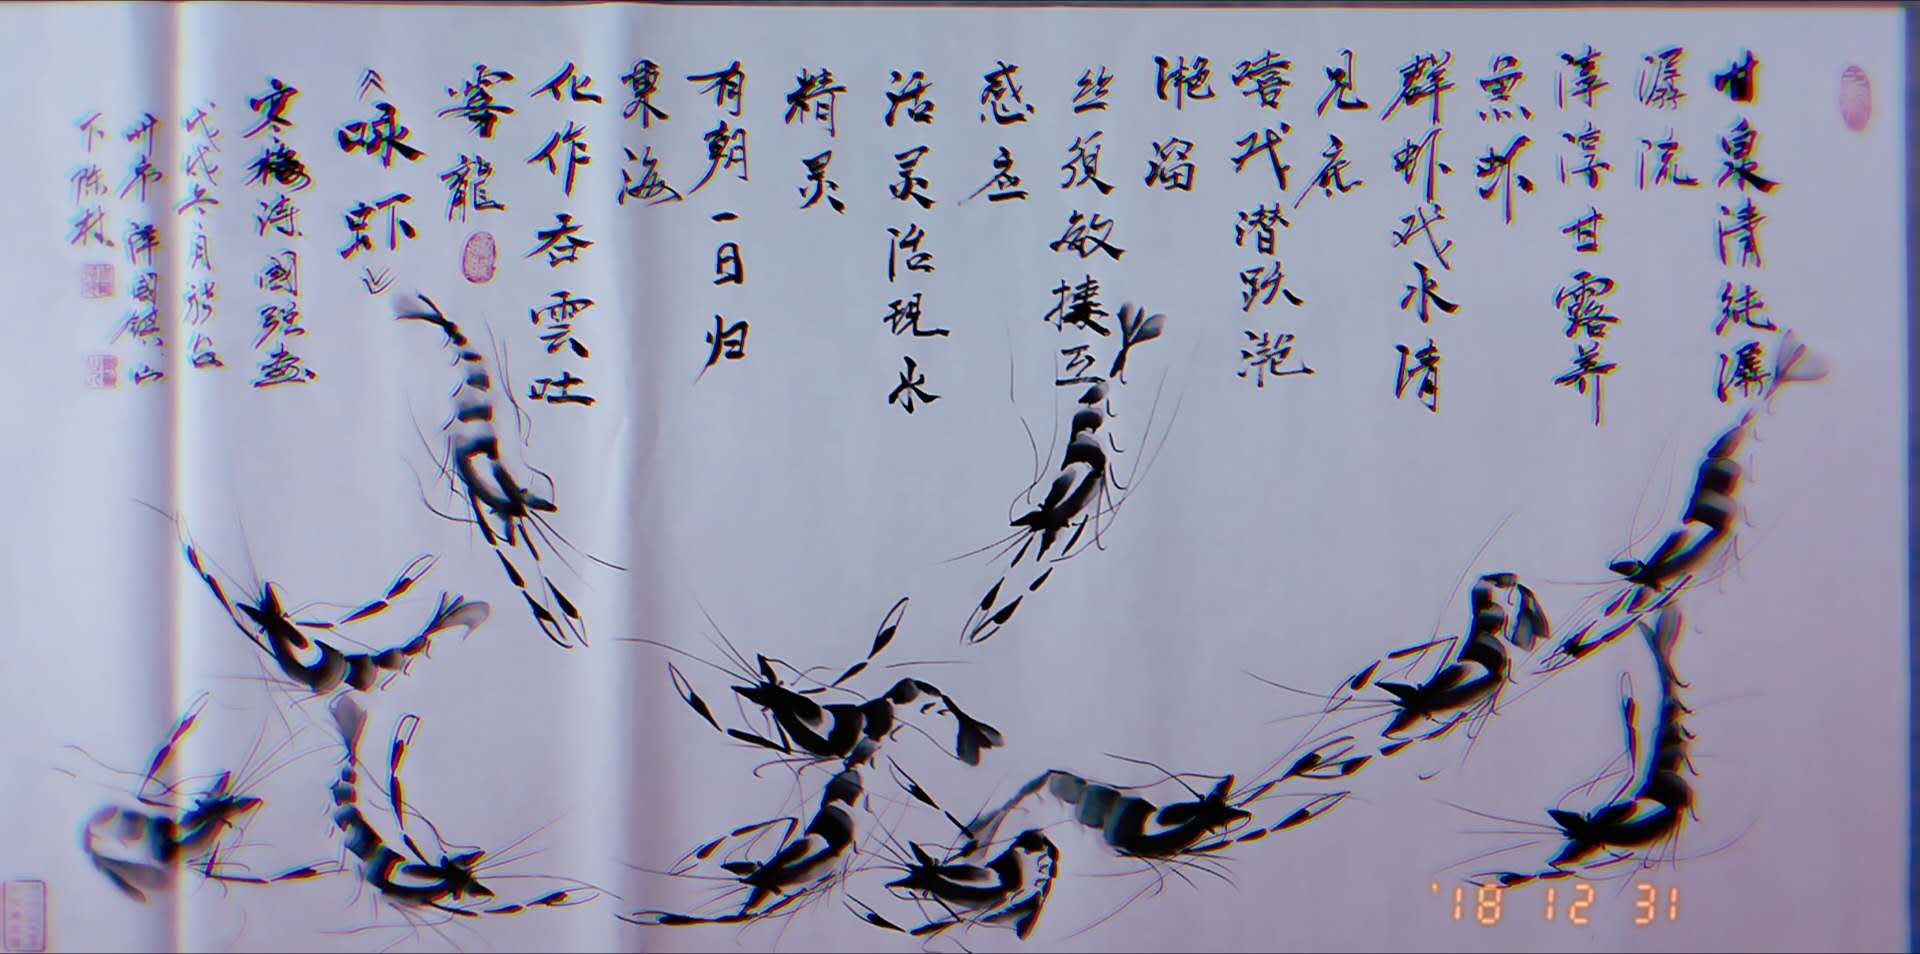 甘泉清純潺
潺流
淳淳甘露养
魚虾
群虾戏水清
见底
嘻戏潜跃滟
滟溜
丝须敏捷互
感应
活灵活现水
精灵
有朝一日归
東海
化作吞雲吐
雾龍
《咏虾》
寒梅涛國強画
戊戌冬月於台
州市
下陈村
'18 12 31